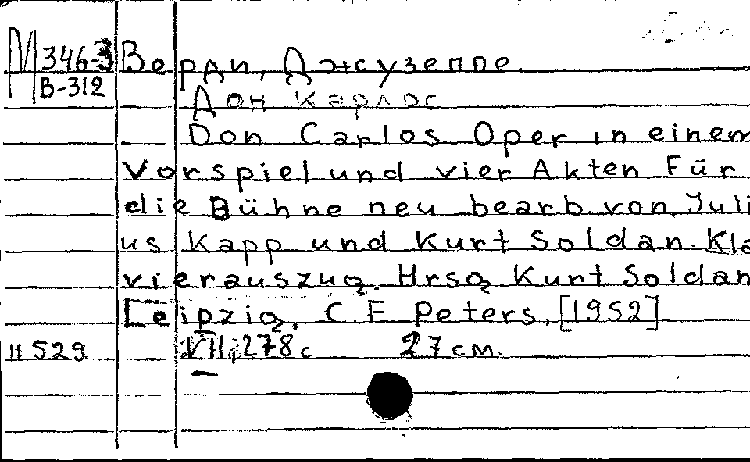 М 346-3 Верди, Джузеппе
В-312
Дон Карлос
Don Carlos Oper in einem
Vorspiel und vier Akten Für
die Bühne neu bearb von Juli
us Kapp und Kurt Soldan. Kla
vierauszug. Hrsg Kurt Soldan
Leipzig, C F Peters, [1952]
11529 VII, 278 с 27 см.